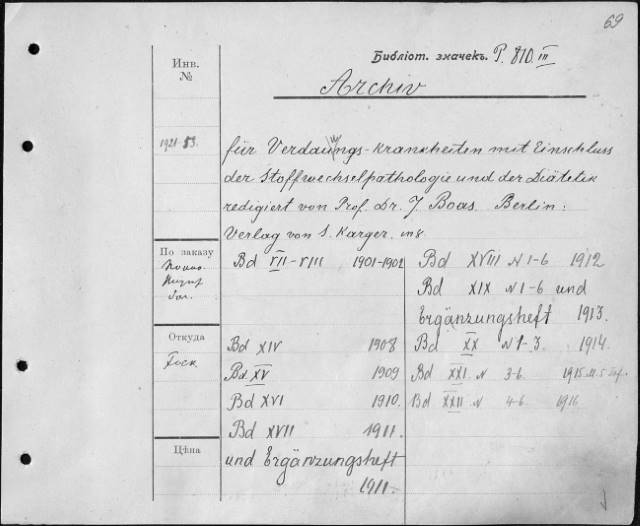 69
Библіот. значекъ. P. 810. III
Archiv
Инв.
№
1921-53.
für Verdauungs-Krankheiten mit Einschluss
der Stoffwechselpathologie und der Diätetik
redigiert von Prof. Dr. J. Boas. Berlin:
Verlag von S. Karger. in 8.
По заказу
Bd VII-VIII 1901-1902
Bd XIV 1908
Откуда
Bd XV 1909
Bd XVI 1910.
Bd XVII 1911.
Цѣна
und Ergänzungsheft
1911.
Bd XVIII N 1-6 1912
Bd XIX N 1-6 und
Ergänzungsheft 1913.
Bd XX N 1-3. 1914.
Bd XXI. N 3-6. 1915
Bd XXII N 4-6. 1916